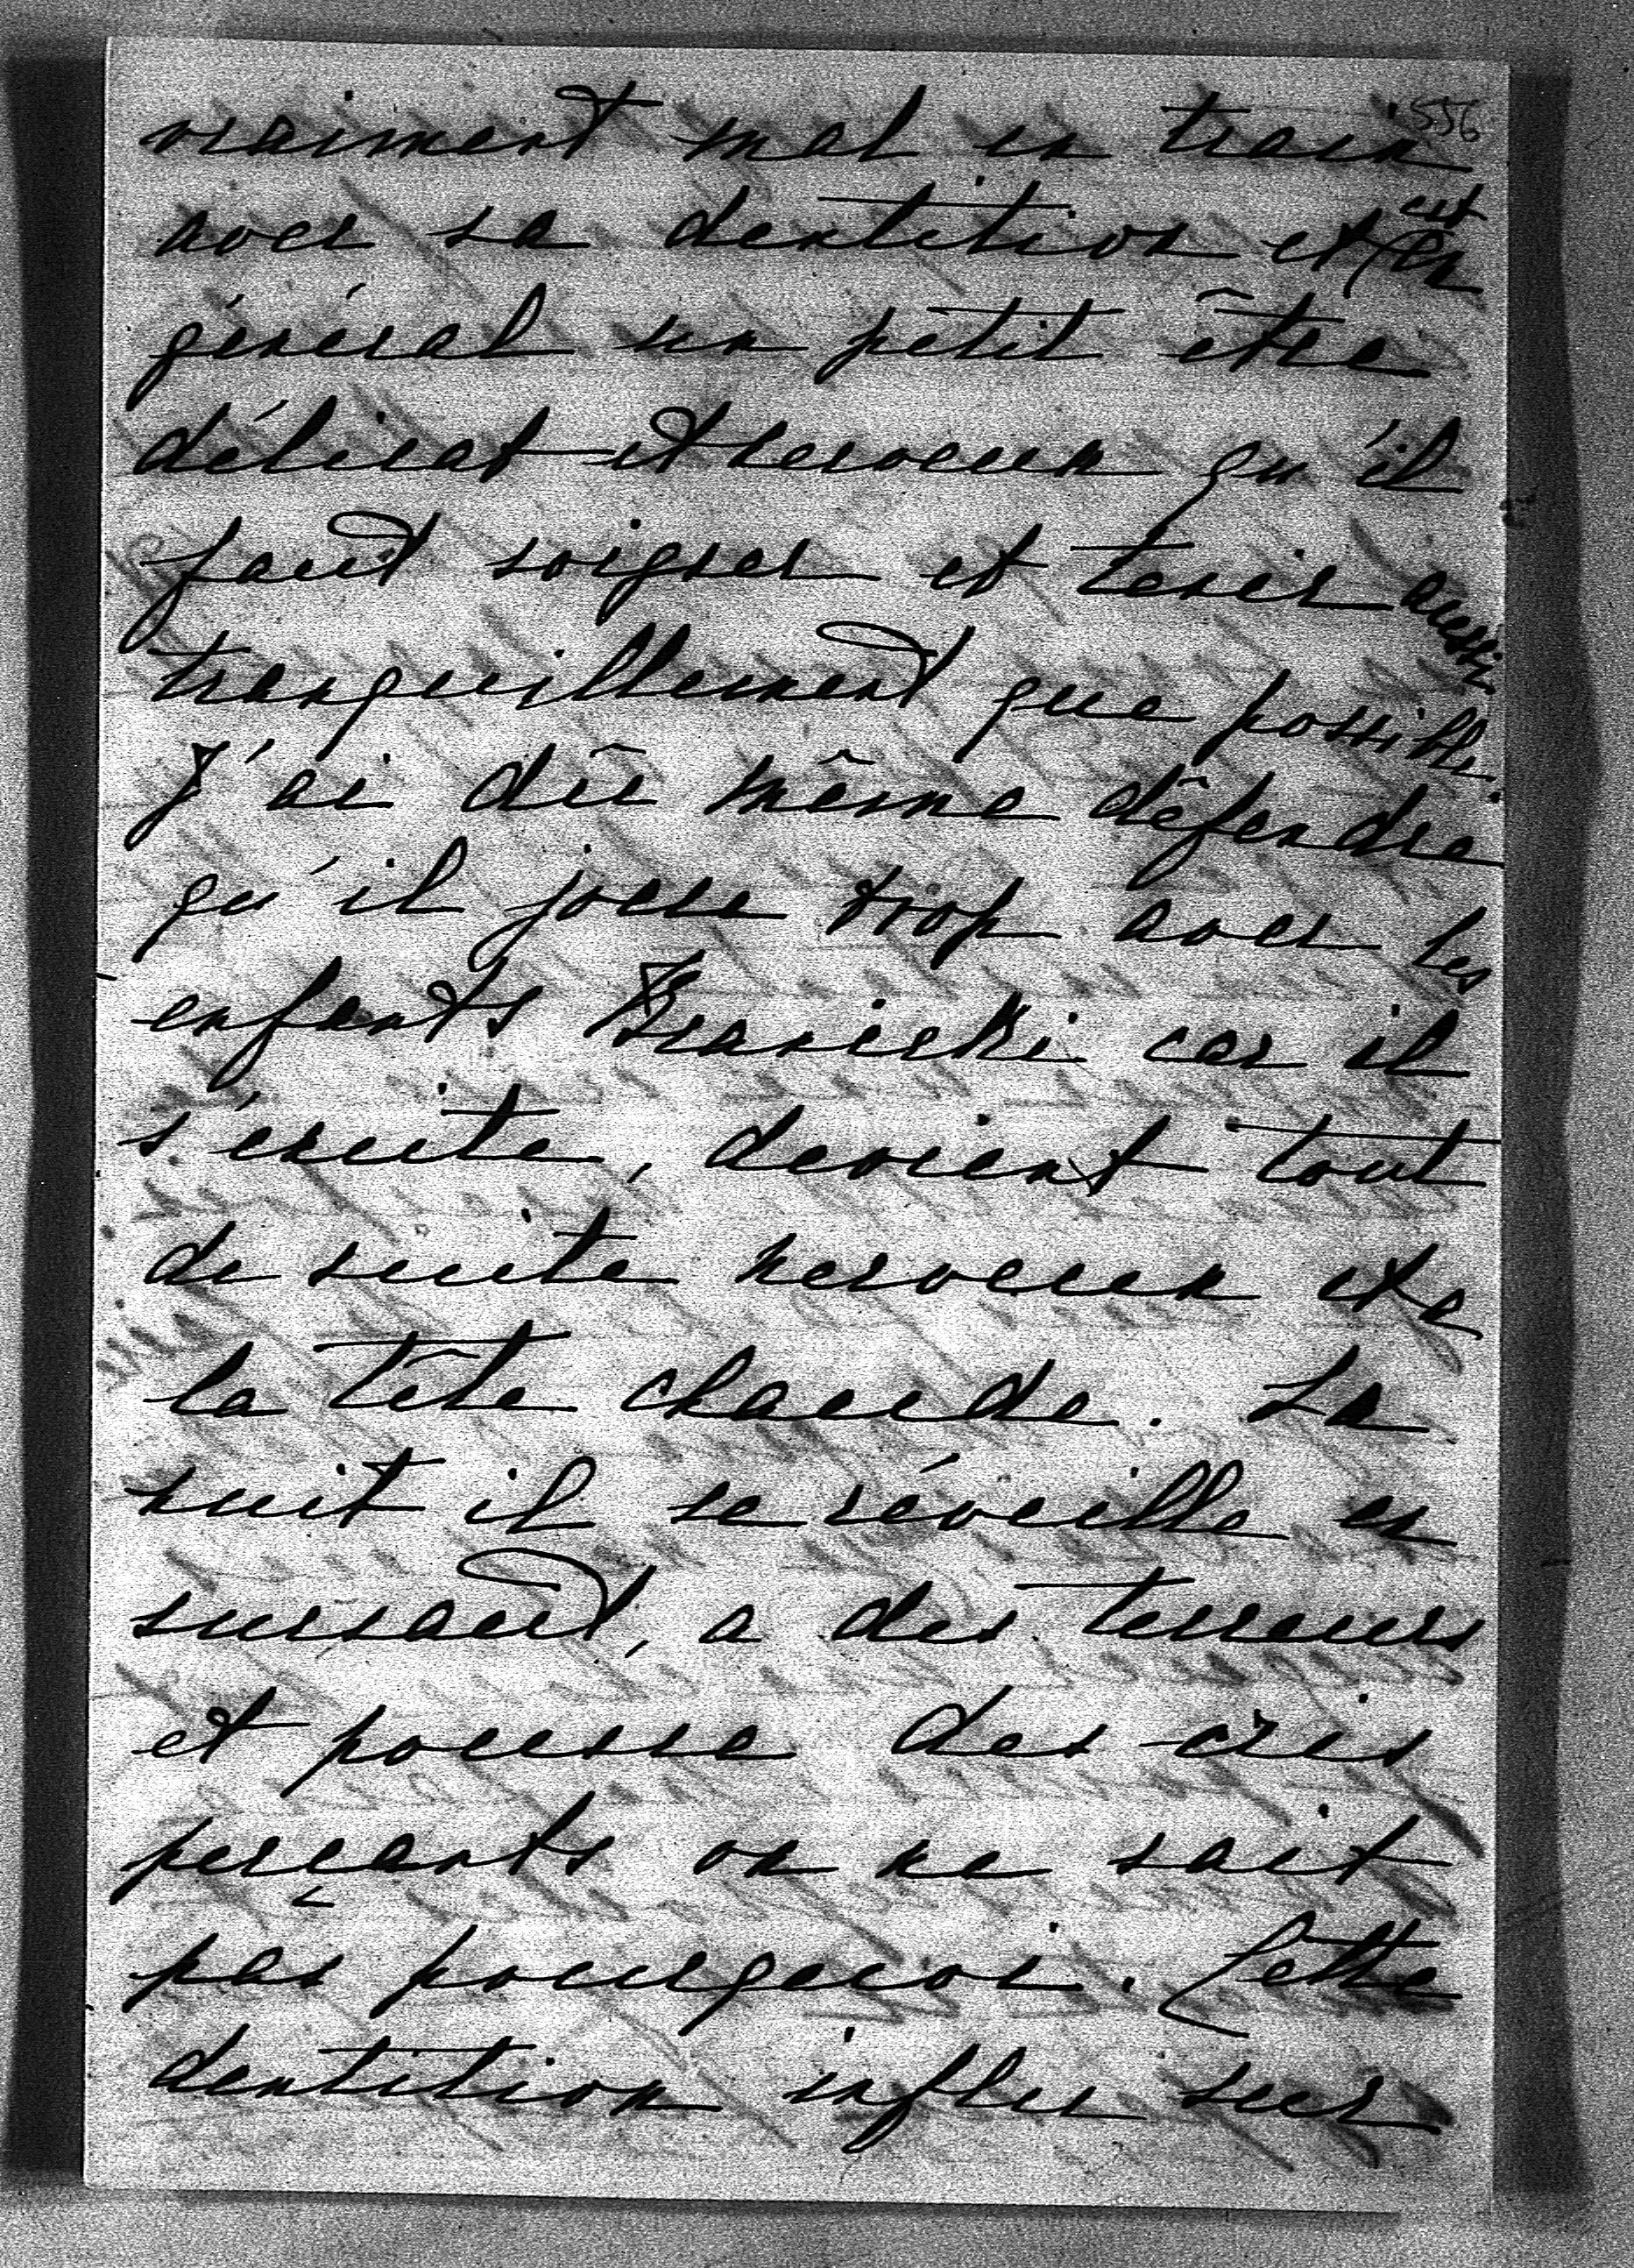 556
vraiment mal en train
avec sa dentition et est en
général un petit être
délicat et nerveux qu'il
faut soigner et tenir aussi
tranquillement que possible.
J'ai dû même défendre
qu'il joue trop avec les
enfants car il
s'excite, devient tout
de suite nerveux et a
la tête chaude. La
nuit il se réveille en
sursaut, a des terreurs
et pousse des cris
perçants on ne sait
pas pourquoi. Cette
dentition influe sur